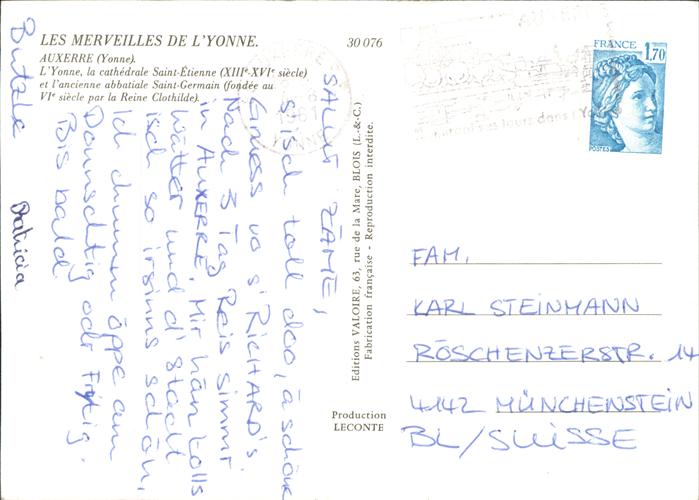 LES MERVEILLES DE L'YONNE.
30 076
AUXERRE (Yonne).
L'Yonne, la cathédrale Saint-Étienne (XIIIe-XVIe siècle)
et l'ancienne abbatiale Saint-Germain (fondée au
VIe siècle par la Reine Clothilde).
SALUT ZÄME,
s'isch toll doo, ä schöne
Gruess vo s'RICHARD's.
Nach 3 Tag Reis simmr
in AUXERRE. Mir hän tolls
Wätter und d'Stadt
isch so irsinns schön,
Ich chumm öppe am
Donnschtig odr Frytig.
Bis bald.
Butzle
Patricia
Editions VALOIRE, 63, rue de la Mare, BLOIS (L.-&-C.)
Fabrication française - Reproduction interdite.
Production
LECONTE
AUXERRE
1981
YONNE
FRANCE
1,70
POSTES
FAM.
KARL STEINMANN
RÖSCHENZERSTR. 14
4142 MÜNCHENSTEIN
BL/SUISSE